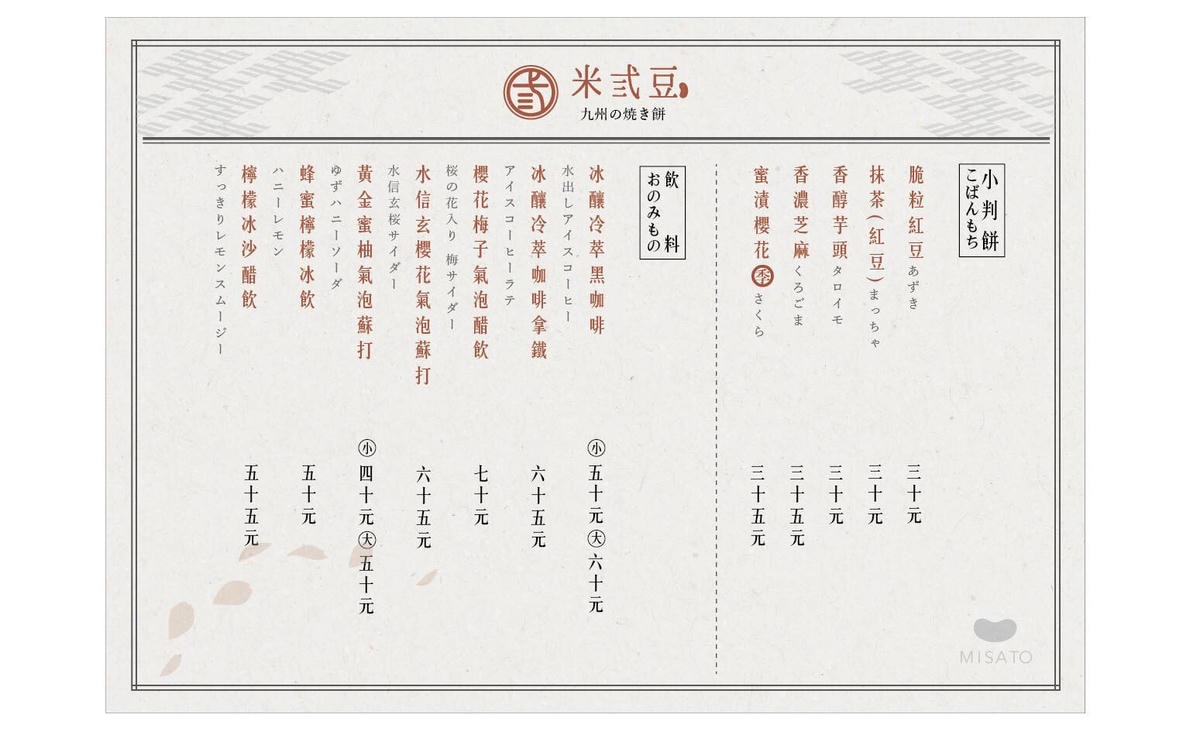 弎
米弎豆
九州の焼き餅
小判餅
こばんもち
脆粒紅豆 あずき 三十元
抹茶(紅豆) まっちゃ 三十元
香醇芋頭 タロイモ 三十元
香濃芝麻 くろごま 三十五元
蜜漬櫻花 季 さくら 三十五元
飲料
おのみもの
冰釀冷萃黑咖啡 小 五十元 大 六十元
水出しアイスコーヒー
冰釀冷萃咖啡拿鐵 六十五元
アイスコーヒーラテ
櫻花梅子氣泡醋飲 七十元
桜の花入り 梅サイダー
水信玄櫻花氣泡蘇打 六十五元
水信玄桜サイダー
黃金蜜柚氣泡蘇打 小 四十元 大 五十元
ゆずハニーソーダ
蜂蜜檸檬冰飲 五十元
ハニーレモン
檸檬冰沙醋飲 五十五元
すっきりレモンスムージー
MISATO